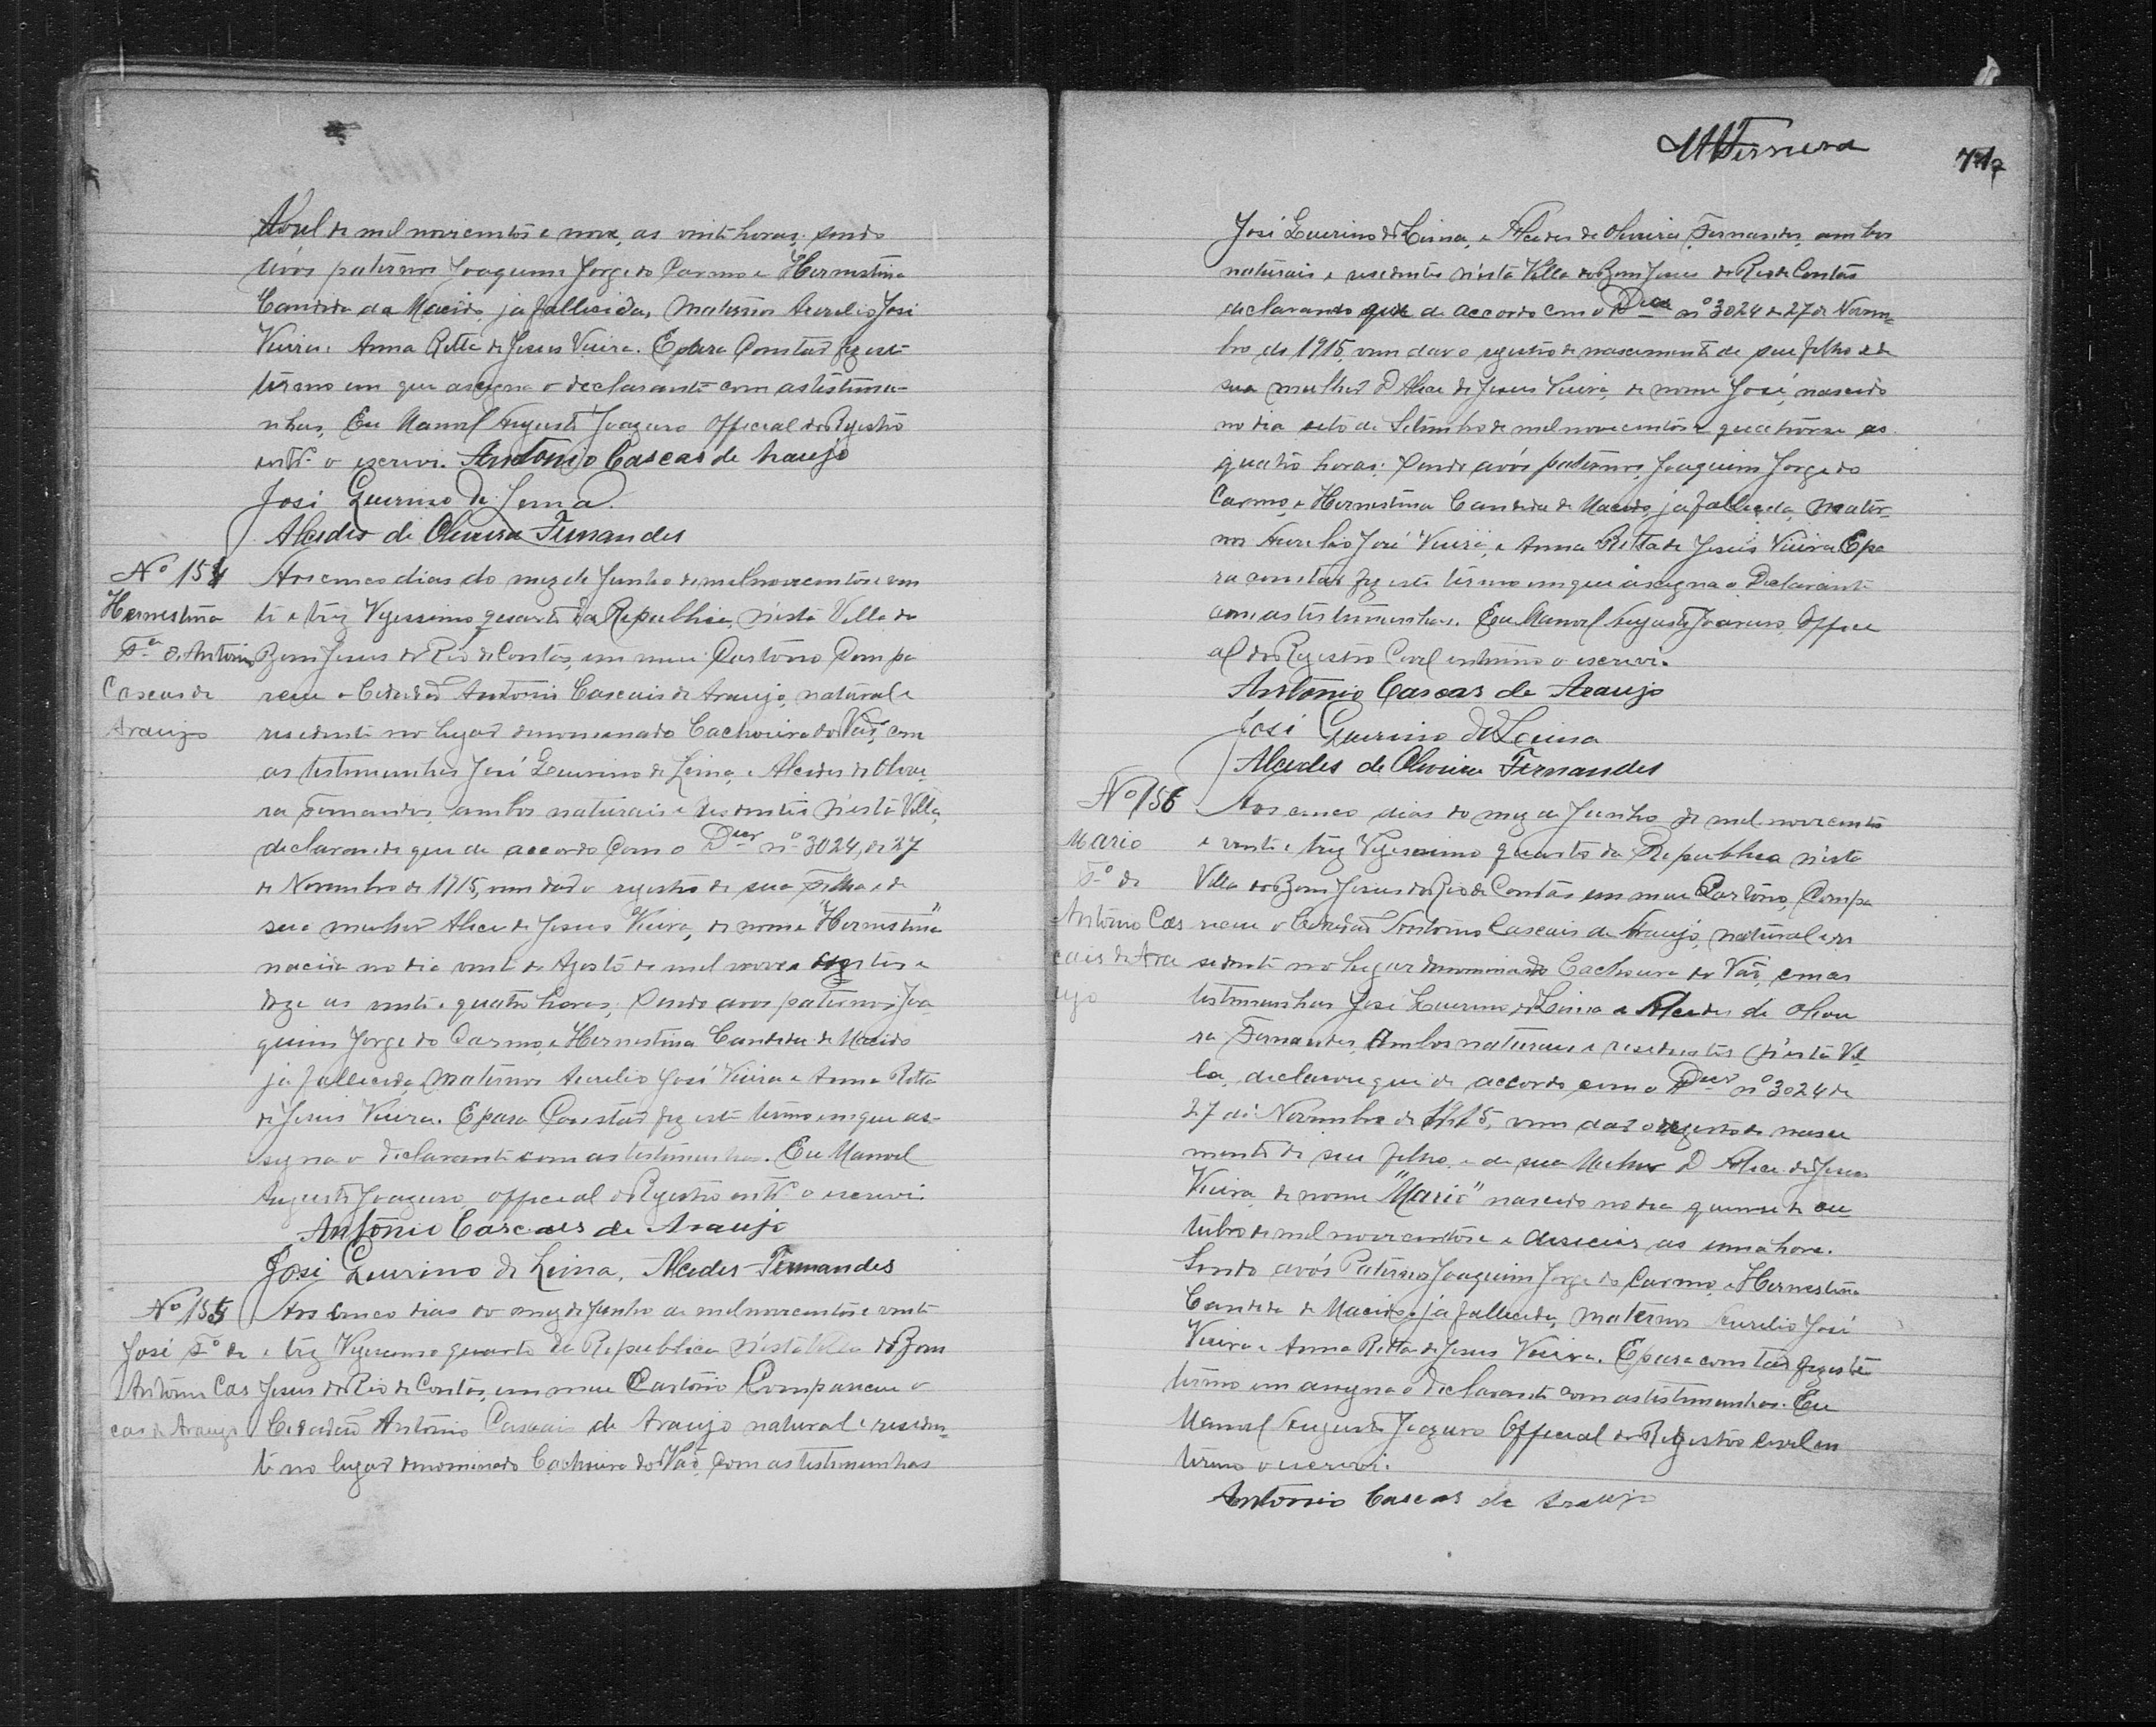 Abril de mil novecentos e nove, as vinte horas; sendo
avós paternos Joaquim Jorge do Carmo e Hernestina
Candida da Macêdo, ja fallecida, maternos Aurelio José
Vieira e Anna Ritta de Jesus Vieira. E para Constar fiz este
termo em que assigna o declarante com as testimu-
nhas, Eu Manoel Augusto Joazeiro Official do Rgistro
intº o escrevi. Antonio Cascas de Araujo
José Guerino de Lema.
Alcides de Oliveira Fernandes
Nº 154
Hernestina
Fª de Antonio
Cascas de
Araujo
Aos cinco dias do mez de Junho de mil novecentos e vin
te e trez Vigessimo quarto da Republica, n'esta Villa do
Bom Jesus do Rio de Contas, em meu Cartório Compa
receu o Cidadão Antonio Cascais de Araujo, natural e
residente no lugar denominado Cachoeira do Váo, com
as testimunhas José Guerino de Leima, e Alcides de Olivei
ra Fernandes, ambos naturais e residentes n'esta Villa,
declarando que de accordo Com o Decr nº 3024, de 27
de Novembro de 1915, vem dar o registro de sua filha e de
sua mulher Alice de Jesus Vieira, de nome "Hernestina"
nacida no dia vinte de Agosto de mil novecentos e
doze as vinte e quatro horas; sendo avos paternos Joa
quim Jorge do Carmo, e Hernestina Candida de Macêdo
ja fallecida, maternos Aurelio José Vieira e Anna Ritta
de Jesus Vieira. E para Constar fiz este termo em que as-
signa o declarante com as testimunhas. Eu Manoel
Augusto Joazeiro official do Rgistro intº o escrevi.
Antonio Cascaes de Araujo
José Guerino de Leima, Alcides Fernandes
Nº 155
José Fº de
Antonio Cas
cas de Araujo
Aos cinco dias do mez de Junho de mil novecentos e vinte
e trez Vigessimo quarto da Republica n'esta Villa do Bom
Jesus do Rio de Contas, em meu Cartório Compareceu o
Cidadão Antonio Cascais de Araujo natural e residen
te no lugar denominado Cachoeira do Váo, com as testimunhas
José Guerino de Leima, e Alcides de Oliveira Fernandes, ambos
naturais e residentes n'esta Villa do Bom Jesus do Rio de Contas
declarando que de accordo com o Decr nº 3024 de 27 de Novem-
bro de 1915, vem dar o registro de nascimento de seu filho e de
sua mulher D Alice de Jesus Vieira, de nome José, nascido
no dia sete de Setembro de mil novecentos e quatorze as
quatro horas; sendo avós paternos, Joaquim Jorge do
Carmo, e Hernestina Candida de Macedo, ja fallecida, mater-
nos Aurelio José Vieira, e Anna Ritta de Jesus Vieira E pa
ra constar fiz este termo em que assigna o Declarante
com as testimunhas. Eu Manoel Augusto Joazeiro, Offici
al do Rgistro Civel interino o escrevi.
Antonio Cascas de Araujo
José Guerino de Leima
Alcides de Oliveira Fernandes
Nº 156
Mario
Fº de
Antonio Cas
cais de Ara
ujo
Aos cinco dias do mez de Junho de mil novecentos
e vinte e trez Vigessimo quarto da Republica n'esta
Villa do Bom Jesus do Rio de Contas em meu Cartório, Compa
receu o Cidadão Antonio Cascais de Araujo, natural e re
sidente no lugar denominado Cachoeira do Váo, com as
testimunhas José Guerino de Leima e Alcides de Olivei
ra Fernandes, Ambos naturais e residentes n'esta Vil
la, declarou que de accordo com o Decr nº 3024 de
27 de Novembro de 1915, vem dar o registro de nasci
mento de seu filho e de sua Mulher D Alice de Jesus
Vieira, de nome "Mario" nascido no dia quinze de Ou
tubro de mil novecentos e deseceis as uma hora.
Sendo avós Paternos Joaquim Jorge do Carmo, e Hernestina
Candida de Macedo, ja fallecida, maternos Aurelio José
Vieira e Anna Ritta de Jesus Vieira. E para constar fiz este
termo em assigna o Declarante com as testimunhas. Eu
Manoel Augusto Joazeiro Official do Registro Civel in
terino o escrevi.
Antonio Cascas de Araujo